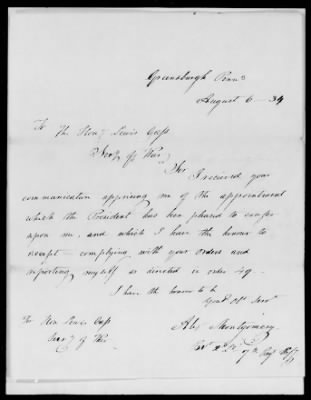 Greensburgh Penna
August 6 - 34
To
The Honl Lewis Cass
Secy of War
Sir
I received your
communication apprising me of the appointment
which the President has been pleased to confer
upon me, and which I have the honour to
accept - complying with your orders and
reporting myself as directed in order 49 -
I have the honour to be
Your Obt Servt
Alex Montgomery
Bvt 2d Lt 7th Regt
The Hon Lewis Cass
Secy of War